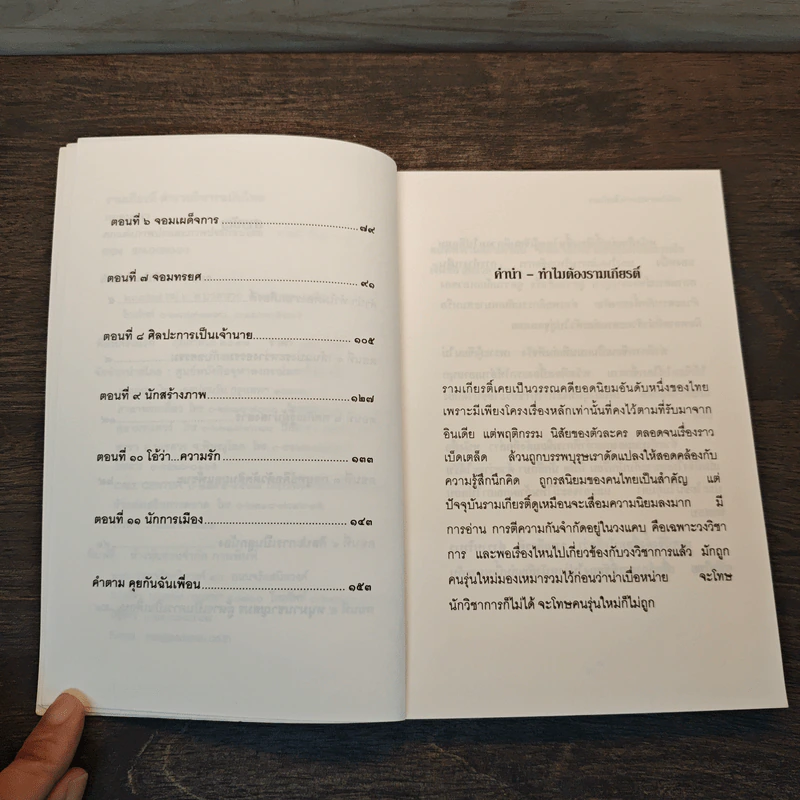 ตอนที่ ๖ จอมเผด็จการ ๗๙
ตอนที่ ๗ จอมทรยศ ๙๑
ตอนที่ ๘ ศิลปะการเป็นเจ้านาย ๑๐๕
ตอนที่ ๙ นักสร้างภาพ ๑๒๗
ตอนที่ ๑๐ โอ้ว่า...ความรัก ๑๓๓
ตอนที่ ๑๑ นักการเมือง ๑๔๓
คำตาม คุยกันฉันเพื่อน ๑๕๓
คำนำ – ทำไมต้องรามเกียรติ์
รามเกียรติ์เคยเป็นวรรณคดียอดนิยมอันดับหนึ่งของไทย
เพราะมีเพียงโครงเรื่องหลักเท่านั้นที่คงไว้ตามที่รับมาจาก
อินเดีย แต่พฤติกรรม นิสัยของตัวละคร ตลอดจนเรื่องราว
เบ็ดเตล็ด ล้วนถูกบรรพบุรุษเราดัดแปลงให้สอดคล้องกับ
ความรู้สึกนึกคิด ถูกรสนิยมของคนไทยเป็นสำคัญ แต่
ปัจจุบันรามเกียรติ์ดูเหมือนจะเสื่อมความนิยมลงมาก มี
การอ่าน การตีความกันจำกัดอยู่ในวงแคบ คือเฉพาะวงวิชา
การ และพอเรื่องไหนไปเกี่ยวข้องกับวงวิชาการแล้ว มักถูก
คนรุ่นใหม่มองเหมารวมไว้ก่อนว่าน่าเบื่อหน่าย จะโทษ
นักวิชาการก็ไม่ได้ จะโทษคนรุ่นใหม่ก็ไม่ถูก